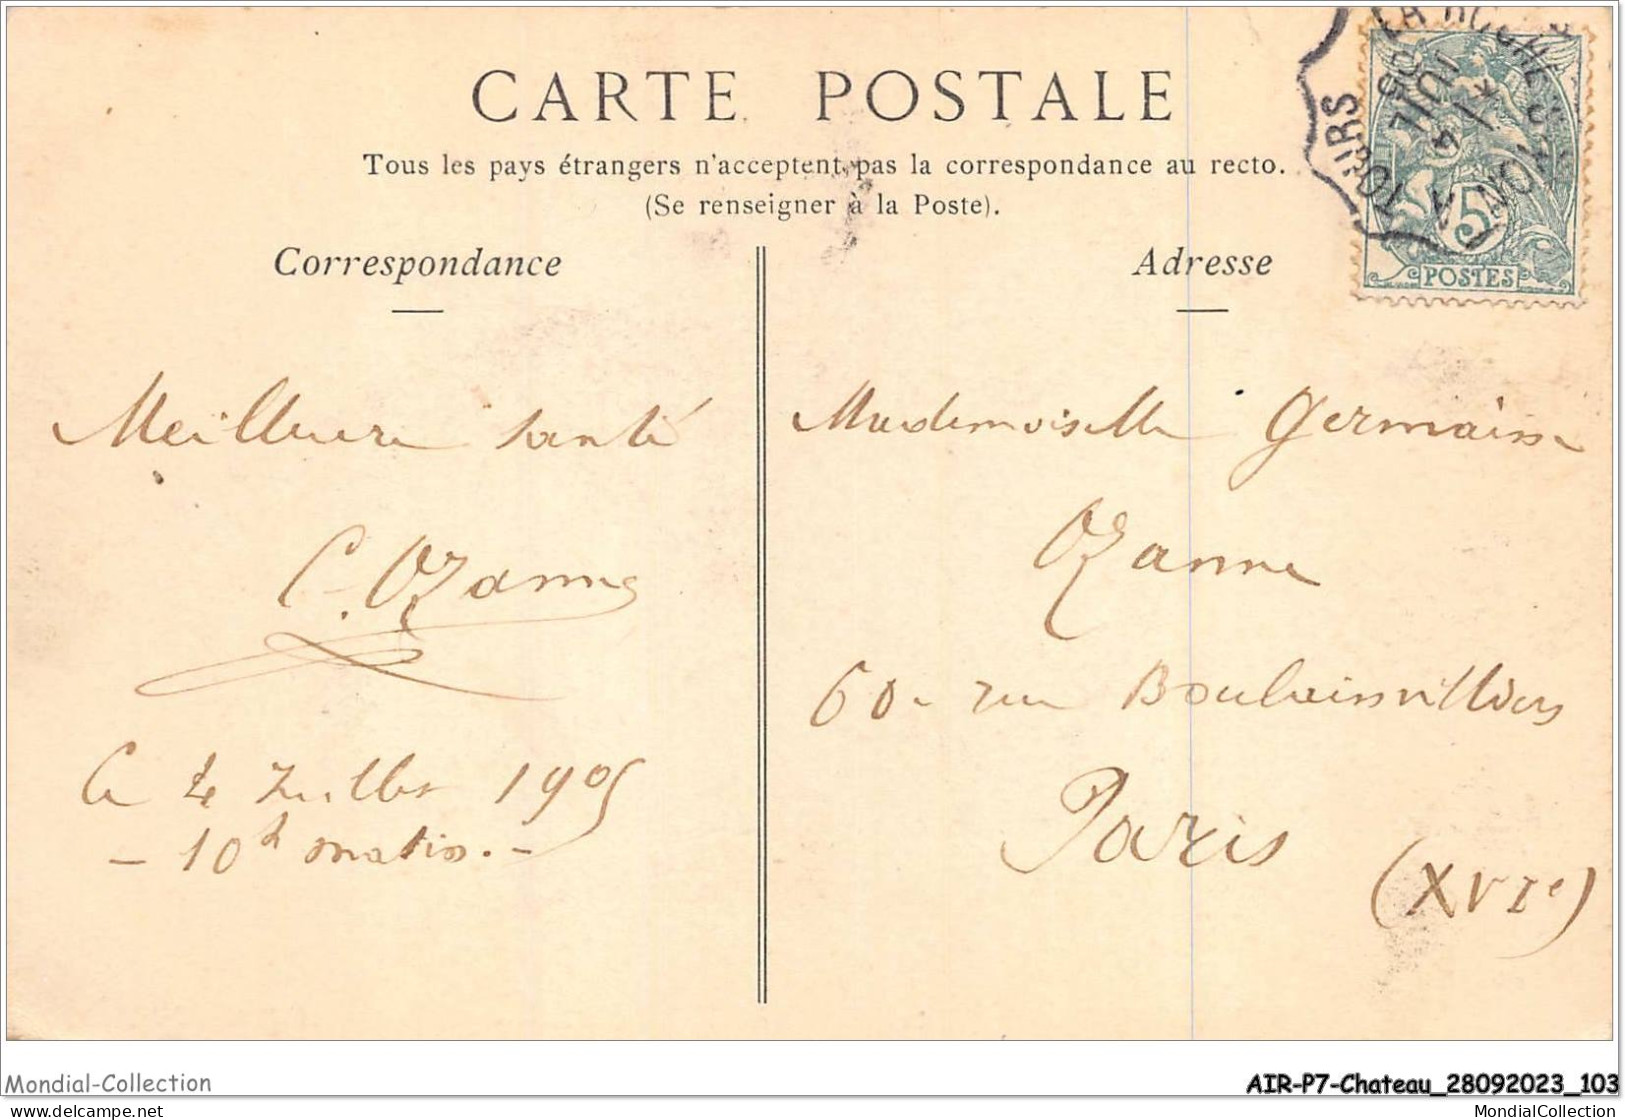 CARTE POSTALE
Tous les pays étrangers n'acceptent pas la correspondance au recto.
(Se renseigner à la Poste).
Correspondance
Adresse
TOURS
LA ROCHE S/YON
4
JUIL
05
5
POSTES
Meilleure santé
C. Ozanne
Ce 4 Juillet 1905
- 10h matin. -
Mademoiselle Germaine
Ozanne
60 - rue Boulainvilliers
Paris
(XVIe)
Mondial-Collection
AIR-P7-Chateau_28092023_103
delcampe.net
MondialCollection